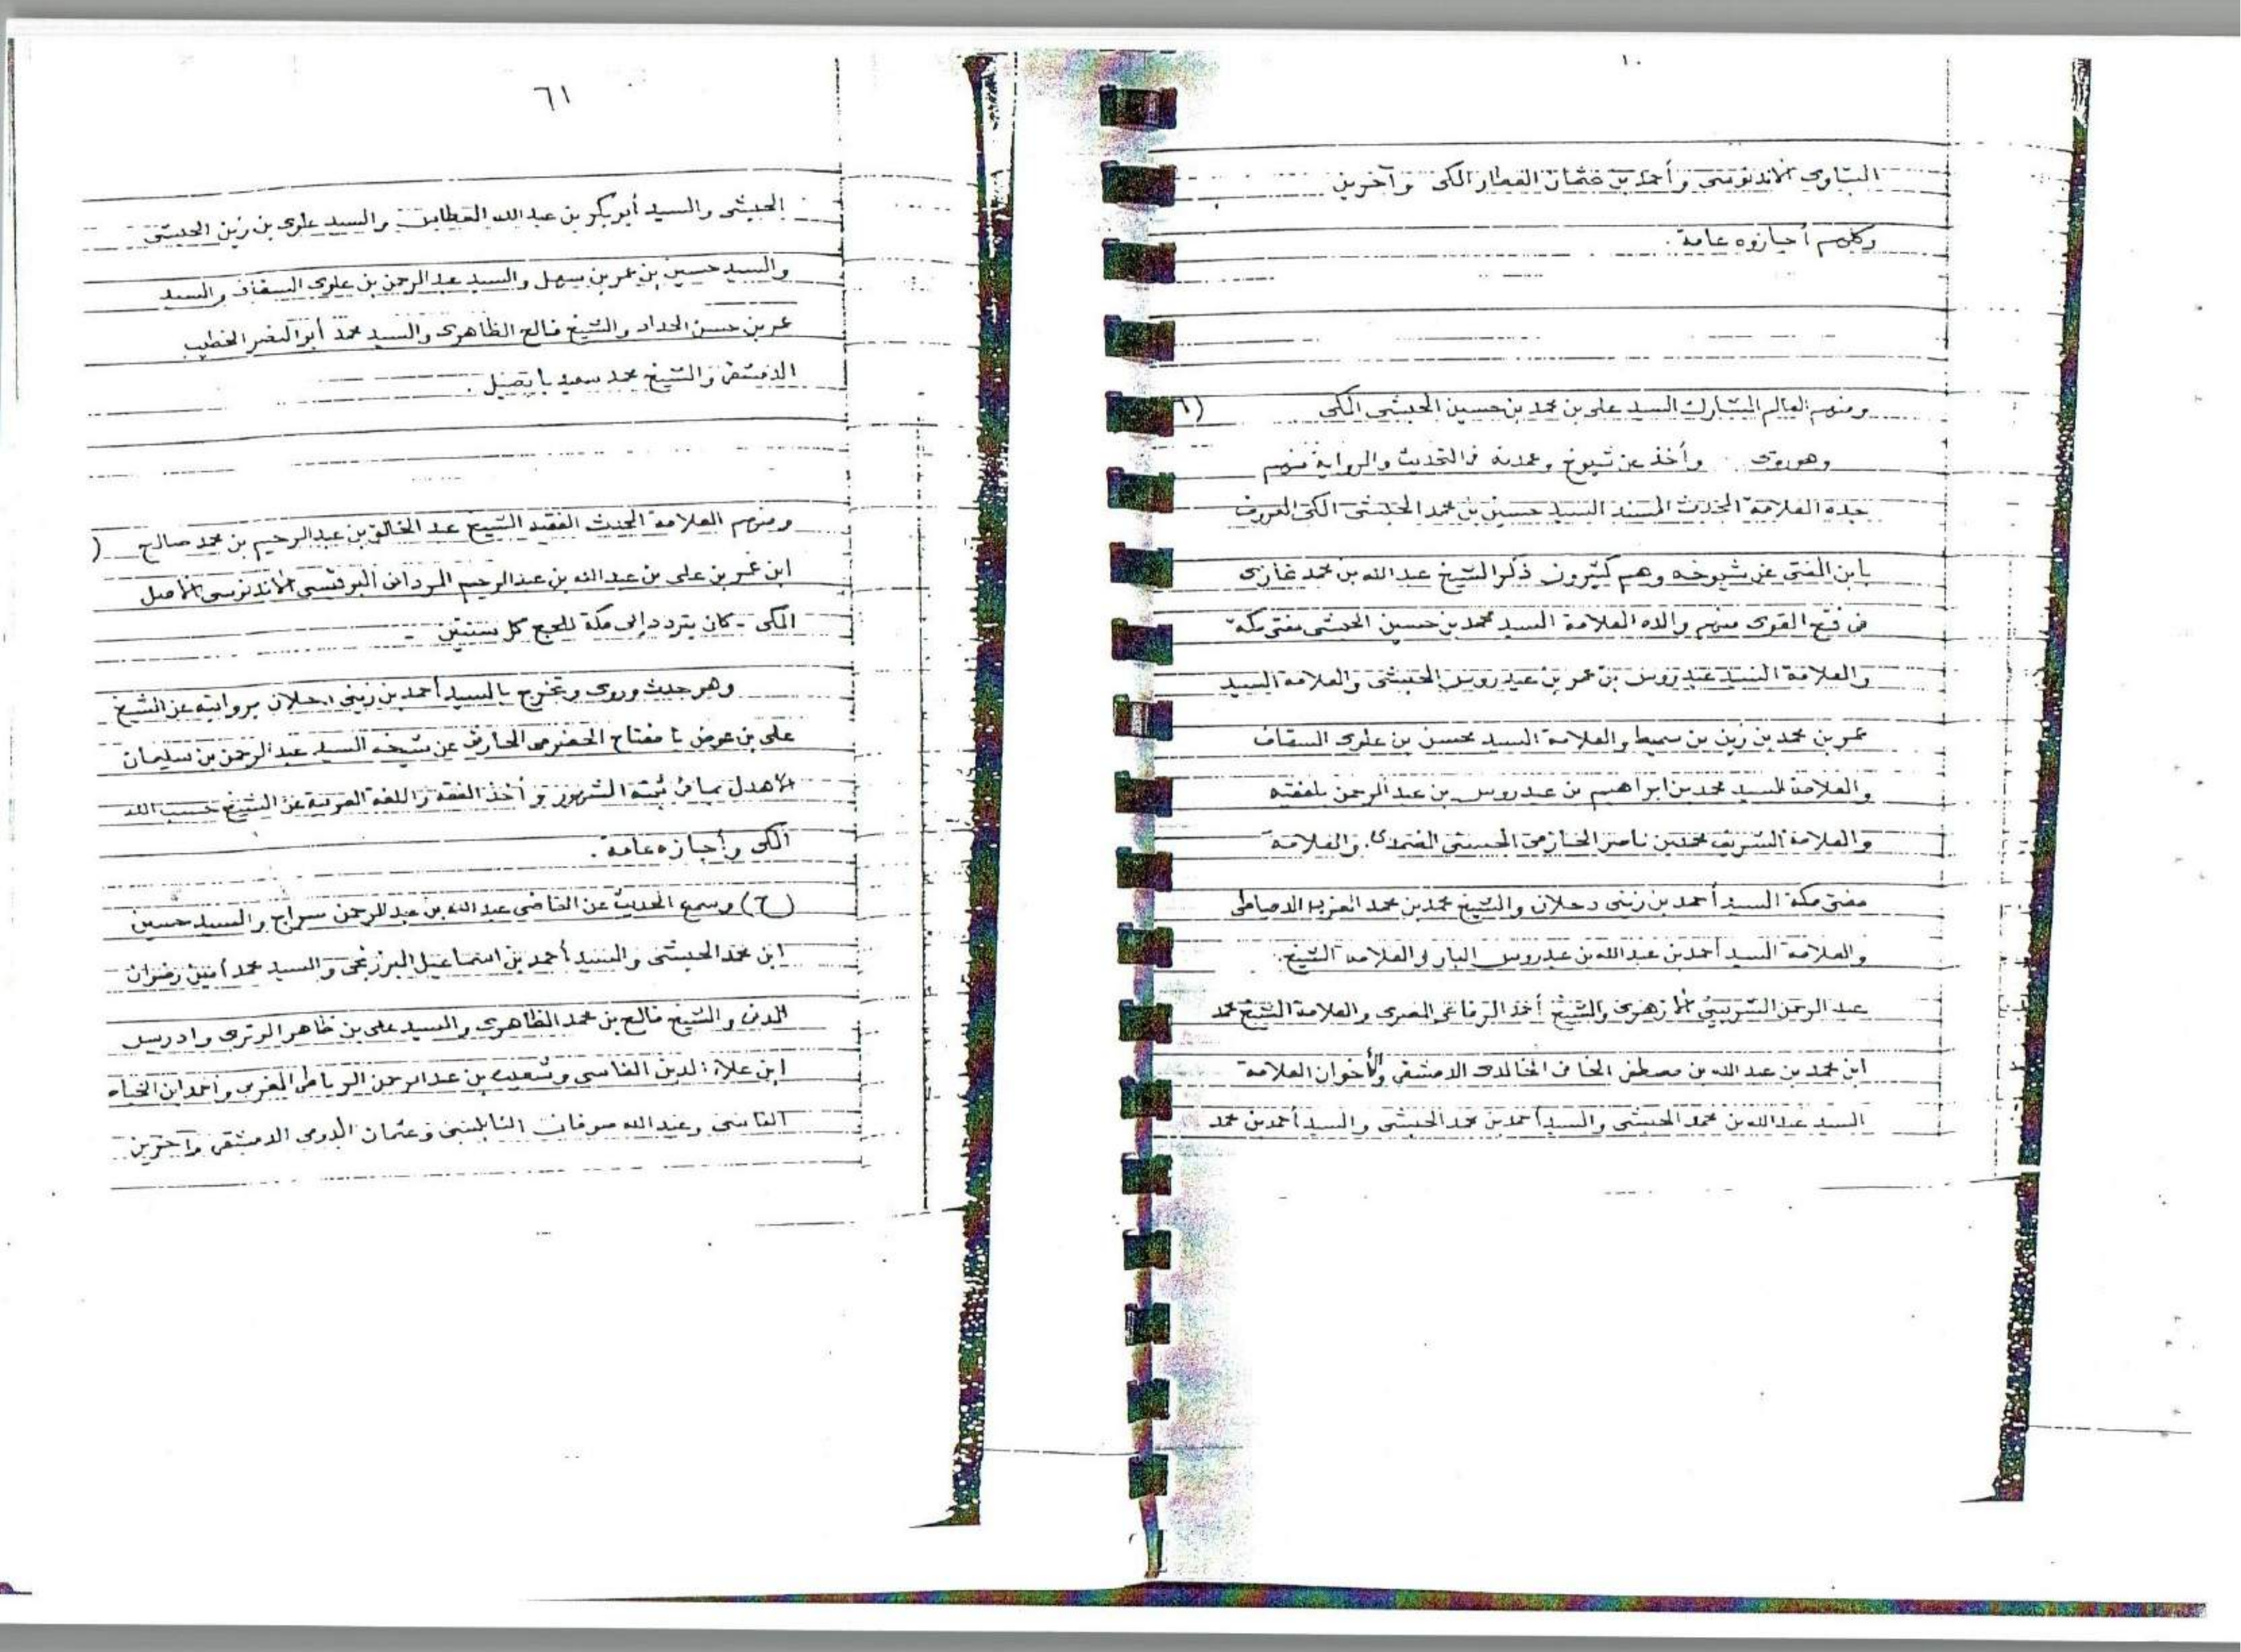 ١٠
الأندنوسى وأحمد بن عثمان العطار المكى وآخرين
وكلهم أجازوه عامة .
ومنهم العالم المشارك السيد على بن محمد بن حسين الحبشى المكى (
وهو روى وأخذ عن شيوخ وعمدته فى التحديث والرواية منهم
جده العلامة المحدث المسند السيد حسين بن محمد الحبشى المكى المعروف
بابن المفتى عن شيوخه وهم كثيرون ذكر الشيخ عبد الله بن محمد غازى
فى فتح القوى منهم والده العلامة السيد محمد بن حسين الحبشى مفتى مكة
والعلامة السيد عيدروس بن عمر بن عيدروس الحبشى والعلامة السيد
عمر بن محمد بن زين بن سميط والعلامة السيد محسن بن علوى السقاف
والعلامة السيد محمد بن ابراهيم بن عيدروس بن عبد الرحمن بلفقيه
والعلامة الشريف محمد بن ناصر الحازمى الحسينى الضمدى والعلامة
مفتى مكة السيد أحمد بن زينى دحلان والشيخ محمد بن محمد العزب الدمياطى
والعلامة السيد أحمد بن عبد الله بن عيدروس البار والعلامة الشيخ
عبد الرحمن الشربينى الأزهرى والشيخ أحمد الرفاعى المصرى والعلامة الشيخ محمد
ابن محمد بن عبد الله بن مصطفى الخانى الخالدى الدمشقى والأخوان العلامة
السيد عبد الله بن محمد الحبشى والسيد أحمد بن محمد الحبشى والسيد أحمد بن محمد
٦١
الحبشى والسيد أبو بكر بن عبد الله العطاس والسيد علوى بن زين الحبشى
والسيد حسين بن عمر بن سهل والسيد عبد الرحمن بن علوى السقاف والسيد
عمر بن حسن الحداد والشيخ فالح الظاهرى والسيد محمد أبو النصر الخطيب
الدمشقى والشيخ محمد سعيد بابصيل .
ومنهم العلامة المحدث الفقيه الشيخ عبد الخالق بن عبد الرحيم بن محمد صالح (
ابن عمر بن على بن عبد الله بن عبد الرحيم الأندنوسى الأصل
المكى - كان يتردد إلى مكة للحج كل سنتين -
وهو حدث وروى وتخرج بالسيد أحمد بن زينى دحلان بروايته عن الشيخ
على بن عوض با مفتاح الحضرمى عن شيخه السيد عبد الرحمن بن سليمان
الأهدل بما فى ثبته المشهور وأخذ الفقه واللغة العربية عن الشيخ حسب الله
المكى وأجازه عامة .
(ح) وسمع الحديث عن القاضى عبد الله بن عبد الرحمن سراج والسيد حسين
ابن محمد الحبشى والسيد أحمد بن اسماعيل البرزنجى والسيد محمد أمين رضوان
المدنى والشيخ فالح بن محمد الظاهرى والسيد على بن ظاهر الوترى وادريس
ابن علاء الدين الفاسى وشعيب بن عبد الرحمن الرباطى المغربى وأحمد ابن الخياط
الفاسى وعبد الله صوفان النابلسى وعثمان الدمشقى وآخرين